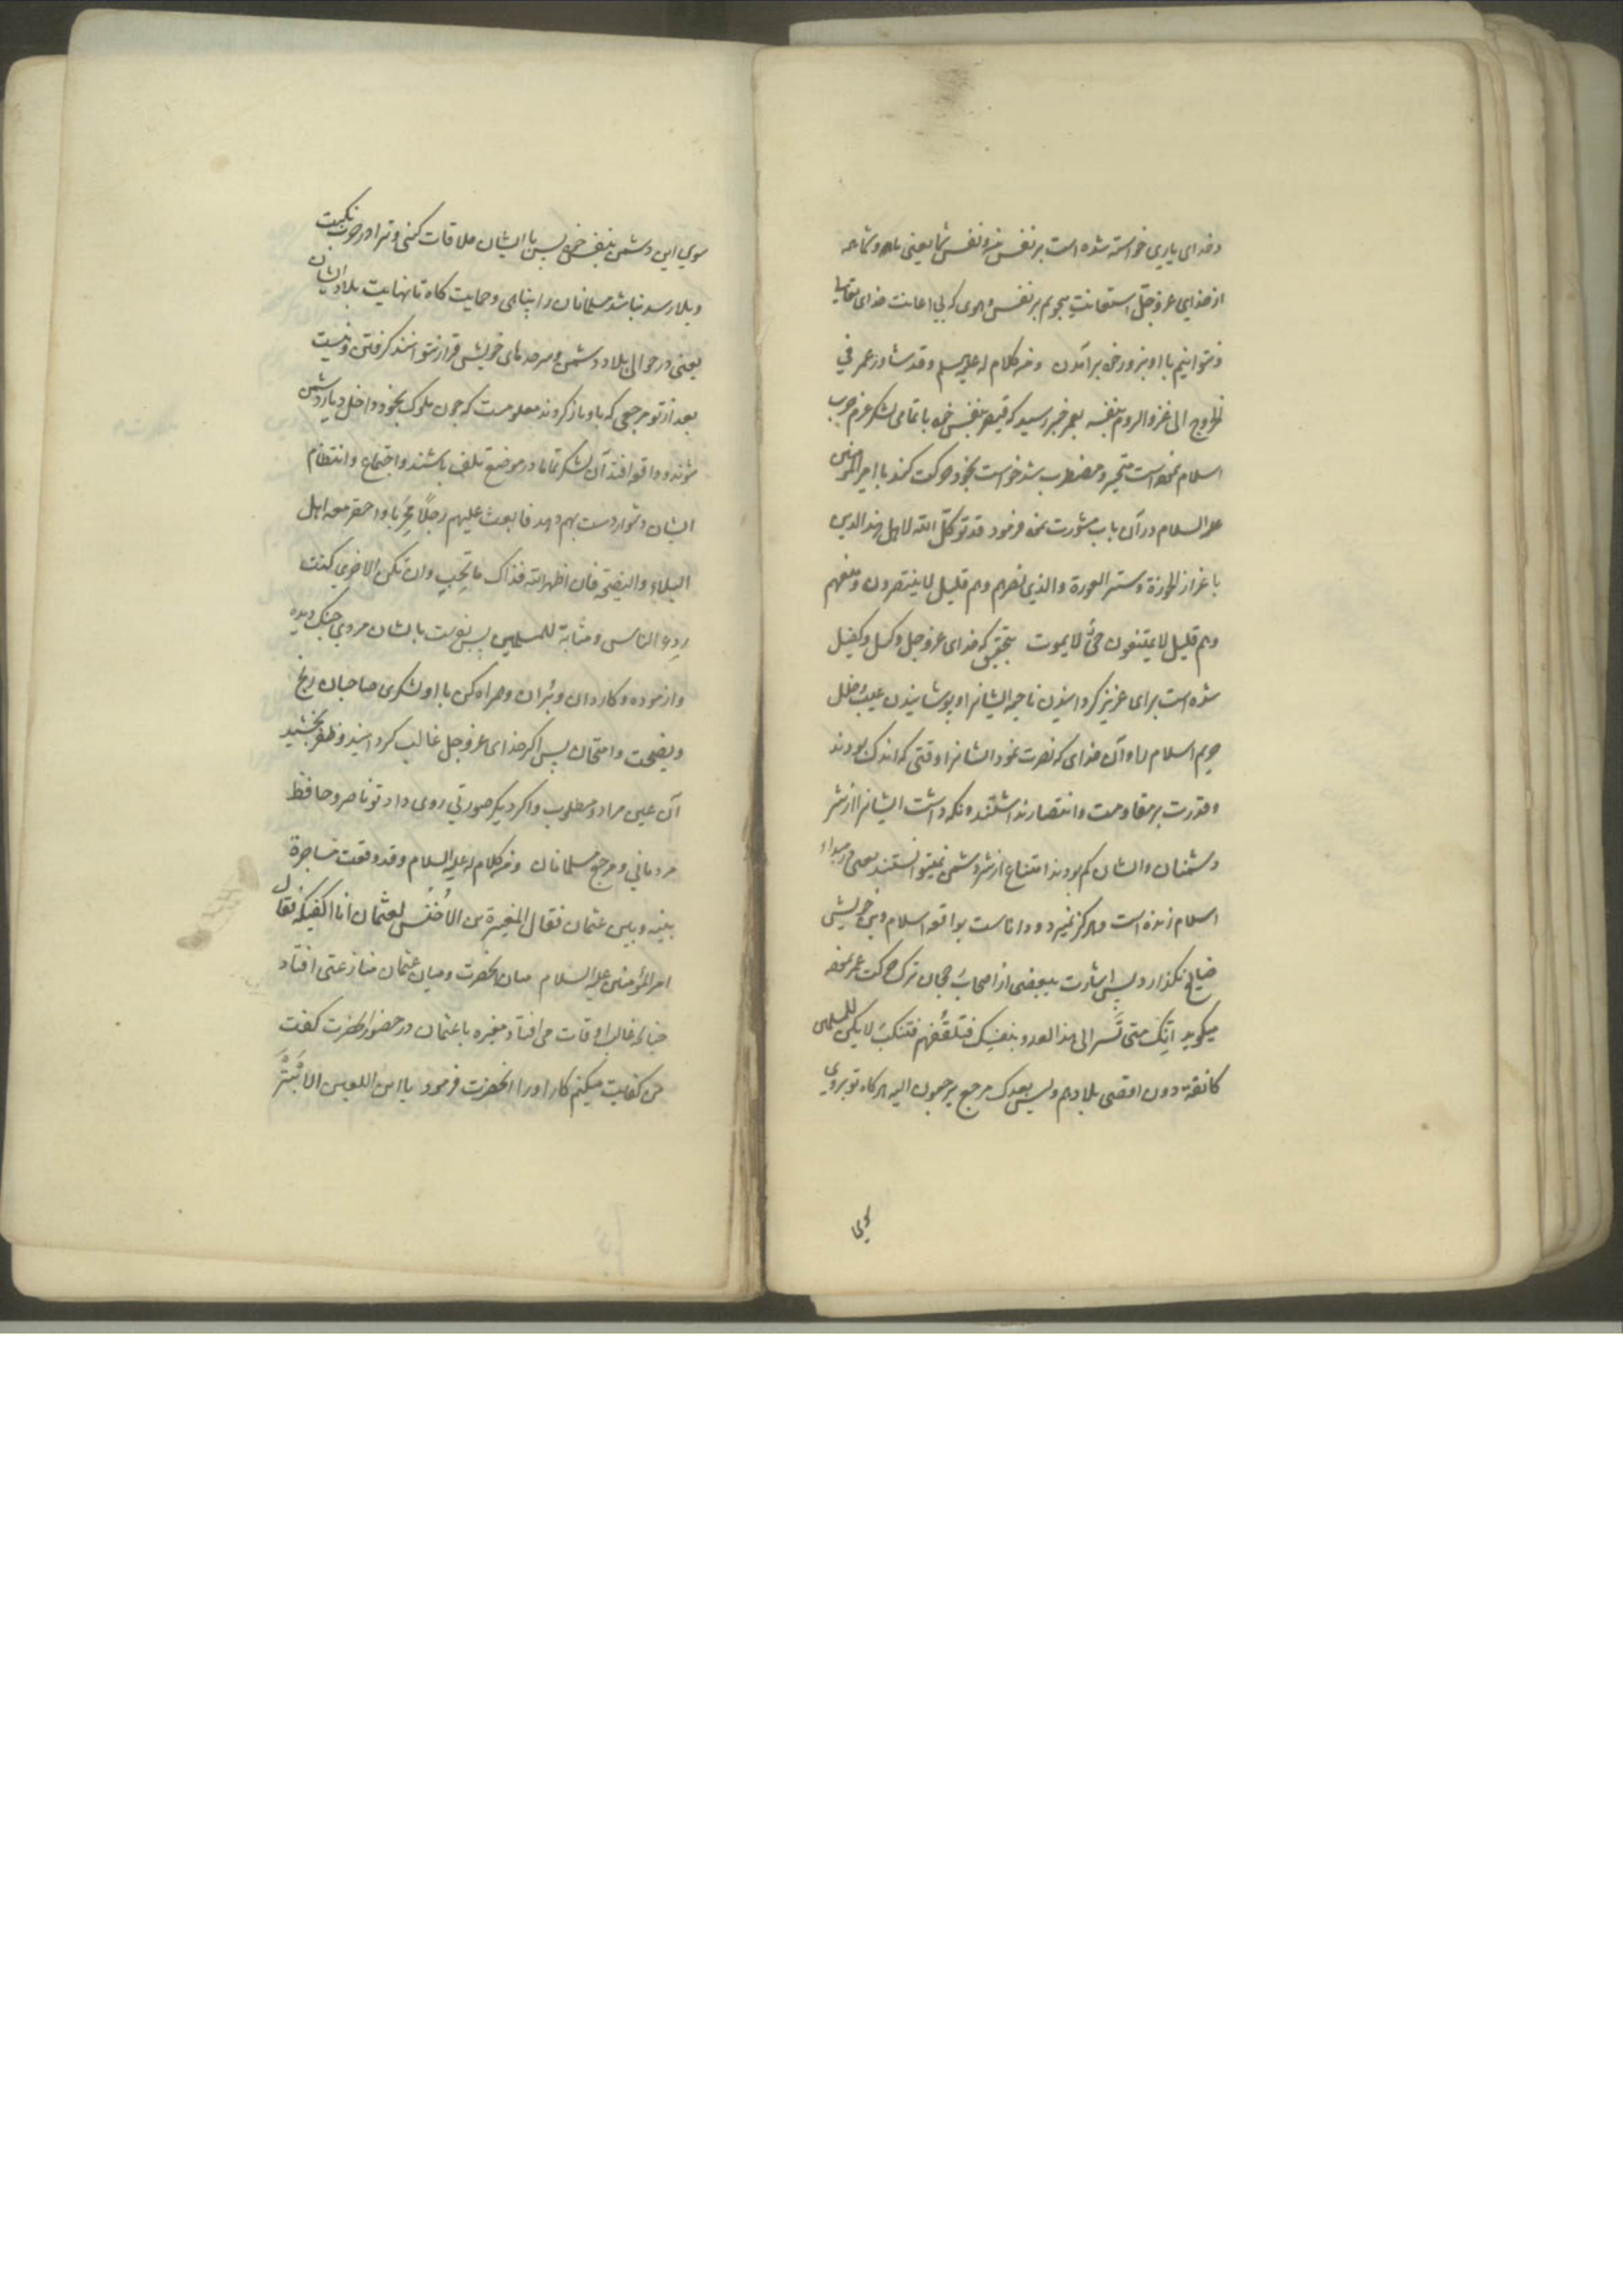 وخدای یاری خواسته شده است بر نفس من و نفس شما یعنی ما و شما همه
از خدای عز و جل استعانت میجویم بر نفس و هوی که بی اعانت خدای تعالی
نتوانیم با او بزور خود برآمدن ومن کلام له علیه السلم وقد شاوره عمر في
الخروج الی غزو الروم بنفسه بعمر خبر رسید که قیصر بنفس خود با تمامی لشکر عزم حرب
اسلام نموده است متحیر و مضطرب شد خواست بخود حرکت کند با امیرالمؤمنین
علیه السلام در آن باب مشورت نمود فرمود قد توکل الله لاهل هذا الدین
باعزاز الحوزة وستر العورة والذي نصرهم وهم قلیل لا ینتصرون ومنعهم
وهم قلیل لا یمتنعون حیٌّ لا یموت بتحقیق که خدای عز و جل وکیل و کفیل
شده است برای عزیز گردانیدن ناحیه ایشانرا و پوشانیدن عیب و خلل
حریم اسلام را و آن خدای که نصرت نمود ایشانرا وقتی که اندک بودند
و قدرت بر مقاومت و انتصار نداشتند و نگه داشت ایشانرا از شر
دشمنان و ایشان کم بودند امتناع از شر دشمن نمیتوانستند یعنی در مبداء
اسلام زنده است و هرگز نمیرد و داناست بواقعه اسلام و دین خویش
ضایع نگذارد پس اشارت ببعضی از اصحاب ترک حرکت عمر نموده
میگوید انّک متی تَسِر الی هذا العدو بنفسک فتلقَهُم فتُنکَب لا یکن للمسلمین
کانفة دون اقصی بلادهم ولیس بعدک مرجع یرجعون الیه هر گاه تو بروی
سوی
سوي این دشمن بنفس خود پس با ایشان ملاقات کنی و ترا در حرب نکبت
و بلا رسد نباشد مسلمانان را پناهی و حمایت گاه تا نهایت بلاد ایشان
یعنی در حوالی بلاد دشمن و سرحدهای خویش قرار نتوانند گرفتن و نیست
بعد از تو مرجعی که باو باز گردند معلومست که چون ملوک بخود داخل دیار دشمن
شوند و واقع افتد آن لشکر تماما در موضع تلف باشند و اجتماع و انتظام
ایشان دشوار دست بهم دهد فابعث علیهم رجلًا مجرّبا واحفز معه اهل
البلاء والنصیحة فان اظهر الله فذاک ما تحب وان تکن الاخری کنت
ردء الناس ومثابة للمسلمین پس بفرست بایشان مردی جنک دیده
و آزموده و کاردان و بران و همراه کن با او لشکری صاحبان رنج
و نصیحت و امتحان پس اگر خدای عز و جل غالب گردانید و ظفر بخشید
آن عین مراد و مطلوب و اگر دیگر صورتی روی داد تو ناصر و حافظ
مردمانی و مرجع مسلمانان ومن کلام له علیه السلام وقد وقعت مشاجرة
بینه وبین عثمان فقال المغیرة بن الاخنس لعثمان انا اکفیکه فقال
امیر المؤمنین علیه السلام میان آنحضرت و میان عثمان منازعتی افتاد
چنانکه غالب اوقات می افتاد مغیره با عثمان در حضور آنحضرت گفت
من کفایت میکنم کار او را آنحضرت فرمود یا ابن اللعین الابتر